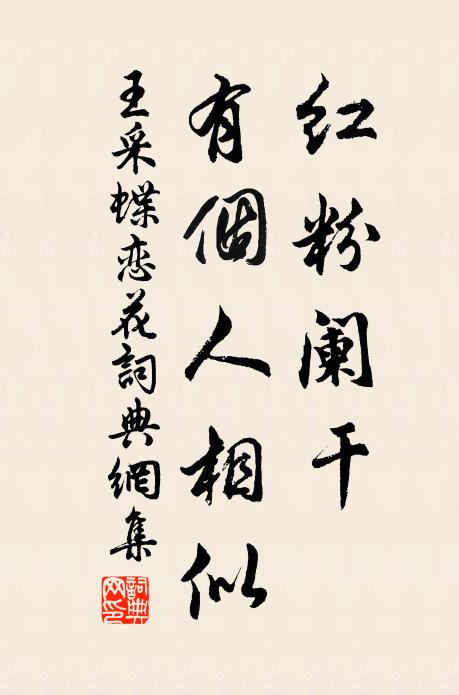 红粉阑干
有個人相似
王采蝶恋花詞典網集
詞典网印